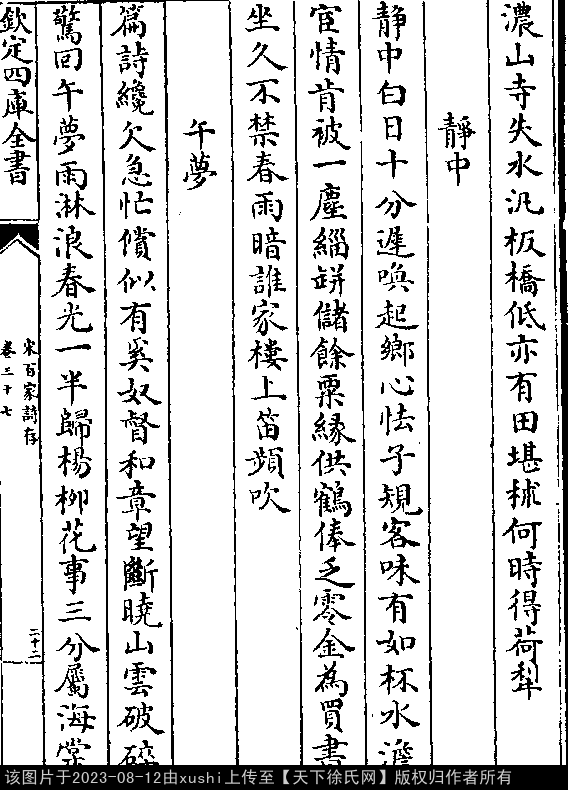 濃山寺失水汎板橋低亦有田堪秫何時得荷犁
靜中
靜中白日十分遲喚起鄉心怯子規客味有如杯水澹
宦情肯被一塵緇缾儲餘粟緣供鶴俸乏零金為買書
坐久不禁春雨暗誰家樓上笛頻吹
午夢
篇詩纔欠急忙償似有奚奴督和章望斷曉山雲破碎
驚回午夢雨淋浪春光一半歸楊柳花事三分屬海棠
欽定四庫全書
宋百家詩存
卷三十七
三十二
该图片于2023-08-12由xushi上传至【天下徐氏网】版权归作者所有